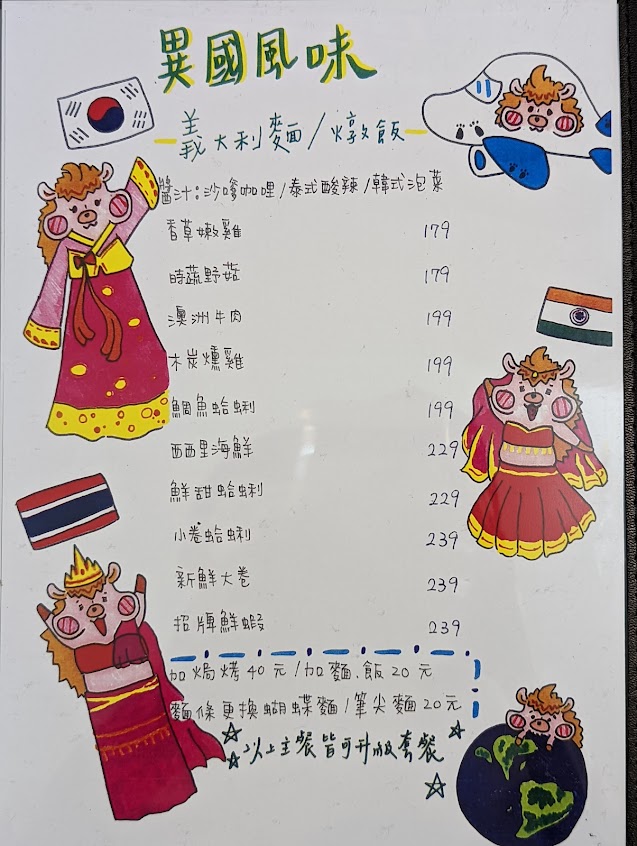 異國風味
義大利麵/燉飯
醬汁:沙嗲咖哩/泰式酸辣/韓式泡菜
香草嫩雞 179
時蔬野菇 179
澳洲牛肉 199
木炭燻雞 199
鯛魚蛤蜊 199
西西里海鮮 229
鮮甜蛤蜊 229
小卷蛤蜊 239
新鮮大卷 239
招牌鮮蝦 239
加焗烤40元/加麵.飯20元
麵條更換蝴蝶麵/筆尖麵20元
以上主餐皆可升級套餐